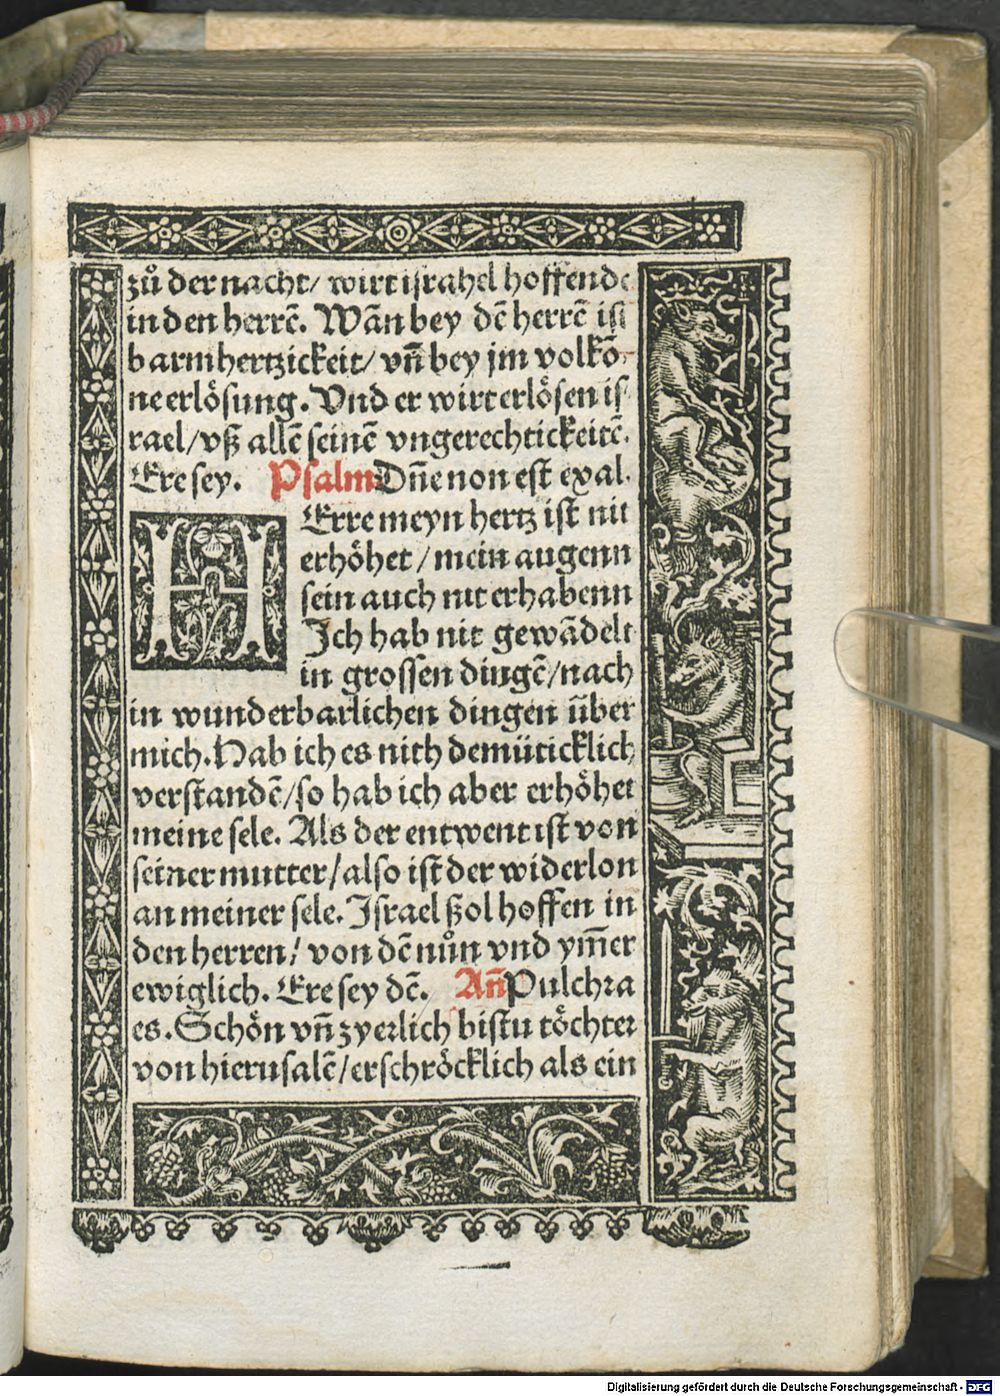 zů der nacht/ wirt israhel hoffende
in den herrẽ. Wãn bey dẽ herrẽ ist
barmhertzickeit/ vñ bey jm volkõ-
ne erlösung. Vnd er wirt erlösen is-
rael/ vß allẽ seinẽ vngerechtickeitẽ.
Ere sey. Psalm Dñe non est exal.
HErre meyn hertz ist nit
erhöhet / mein augenn
sein auch nit erhabenn
Ich hab nit gewãdelt
in grossen dingẽ/ nach
in wunderbarlichen dingen über
mich. Hab ich es nith demüticklich
verstandẽ/ so hab ich aber erhöhet
meine sele. Als der entwent ist von
seiner mutter/ also ist der widerlon
an meiner sele. Israel ßol hoffen in
den herren/ von dẽ nůn vnd ym̃er
ewiglich. Ere sey dẽ. Añ Pulchra
es. Schön vñ zyerlich bistu töchter
von hierusalẽ/ erschröcklich als ein
Digitalisierung gefördert durch die Deutsche Forschungsgemeinschaft - DFG